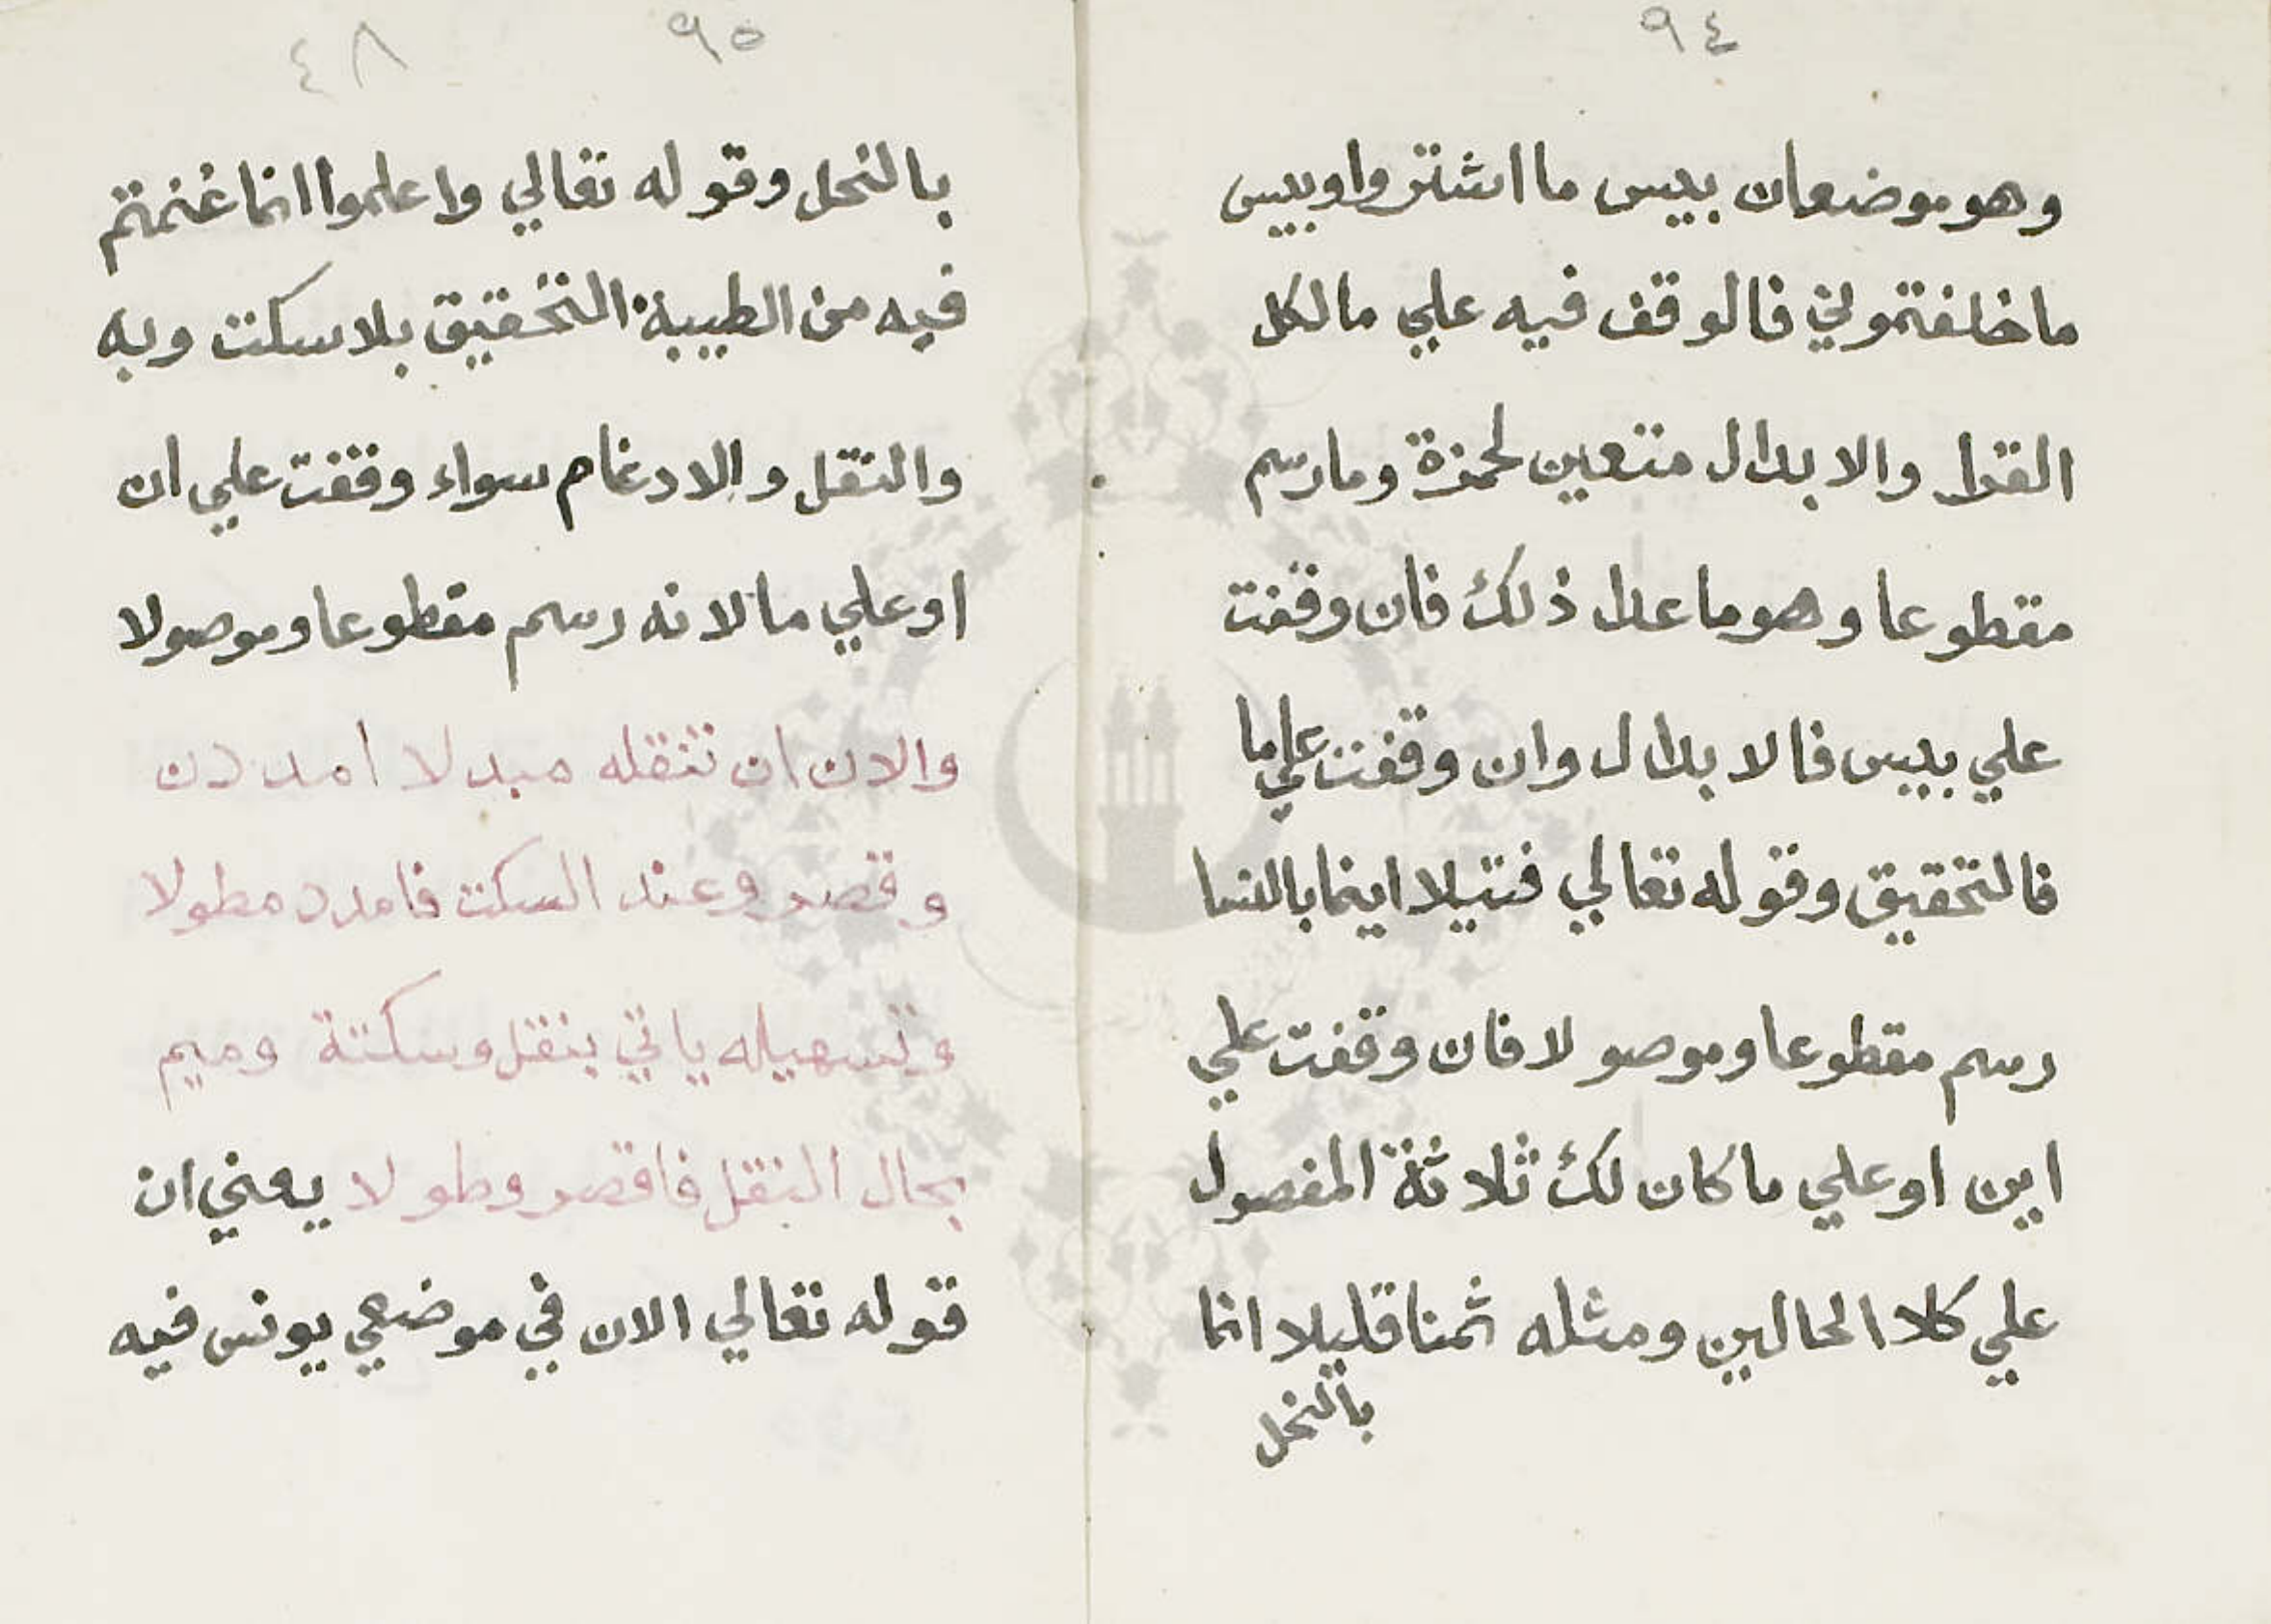 ٩٤
وهو موضعان بيس ما اشتروا وبيس
ما خلفتموني فالوقف فيه علي ما لكل
القرا والابدال متعين لحمزة وما رسم
مقطوعا وهو ما عدا ذلك فان وقفت
علي بيس فالابدال وان وقفت علي ما
فالتحقيق وقوله تعالي فتيلا اينما بالنسا
رسم مقطوعا وموصولا فان وقفت علي
اين او علي ما كان لك ثلاثة المفصول
علي كلا الحالين ومثله ثمنا قليلا انما
بالنحل
٩٥
٤٨
بالنحل وقوله تعالي واعلموا انما غنمتم
فيه من الطيبة التحقيق بلا سكت وبه
والنقل والادغام سواء وقفت علي ان
او علي ما لانه رسم مقطوعا وموصولا
والان ان تنقله مبدلا امددن
وقصر وعند السكت فامدد مطولا
وتسهيله ياتي بنقل وسكتة وميم
بحال النقل فاقصر وطولا يعني ان
قوله تعالي الان في موضعي يونس فيه